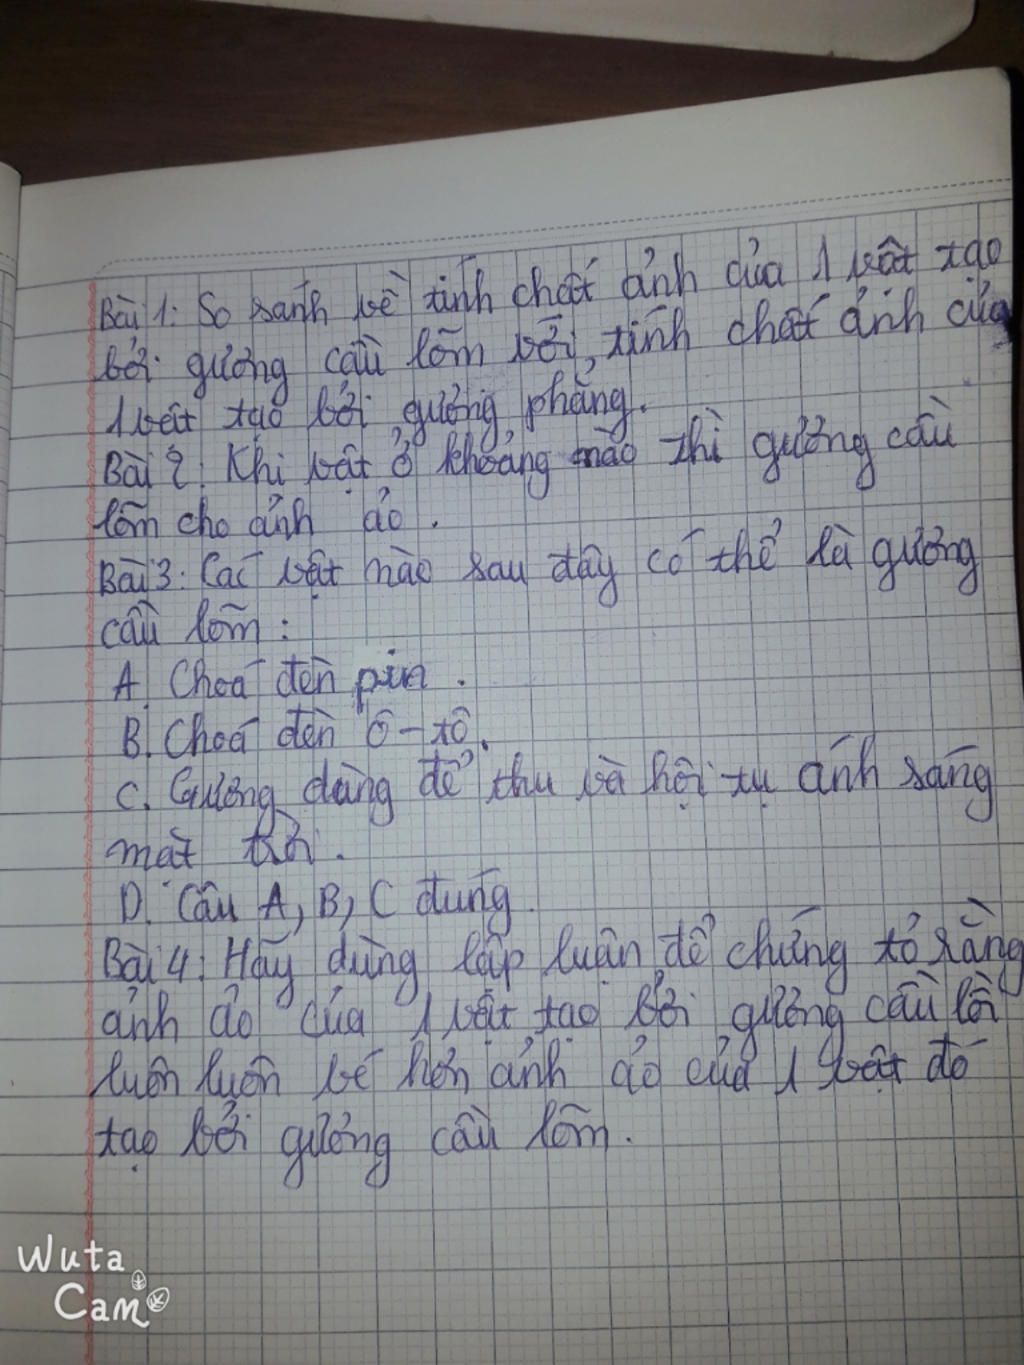 Bài 1: So sánh về tính chất ảnh của 1 vật tạo
bởi gương cầu lõm với tính chất ảnh của
1 vật tạo bởi gương phẳng.
Bài 2: Khi vật ở khoảng nào thì gương cầu
lõm cho ảnh ảo.
Bài 3: Các vật nào sau đây có thể là gương
cầu lõm:
A. Choá đèn pin.
B. Choá đèn ô-tô.
C. Gương dùng để thu và hội tụ ánh sáng
mặt trời.
D. Câu A, B, C đúng.
Bài 4: Hãy dùng lập luận để chứng tỏ rằng
ảnh ảo của 1 vật tạo bởi gương cầu lồi
luôn luôn bé hơn ảnh ảo của 1 vật đó
tạo bởi gương cầu lõm.
Wuta
Cam